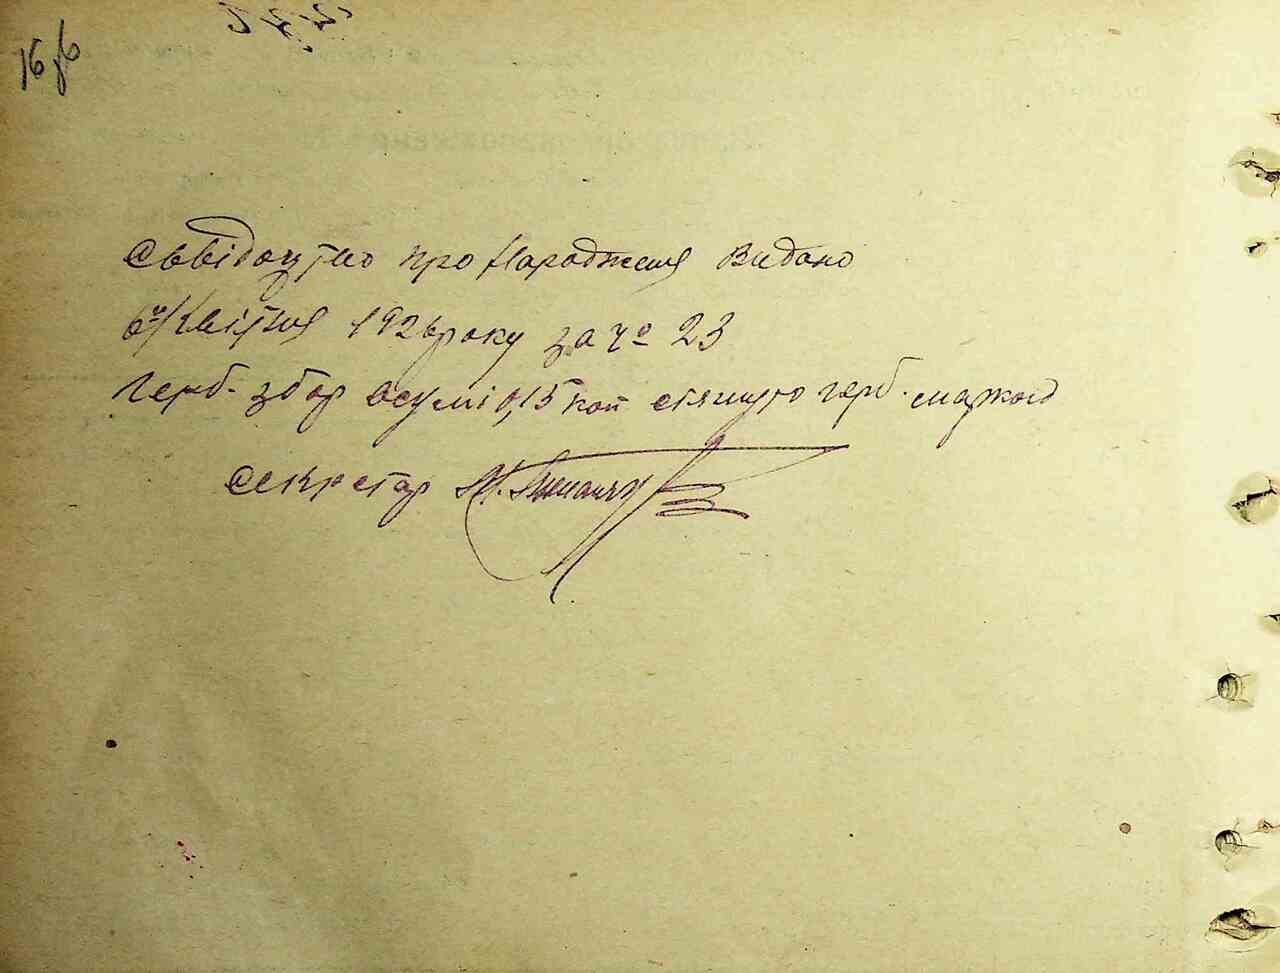 16 об
Свідоцтво про Народження Видано
6го/Квітня 1926 року за чо 23
Герб. збор всумі 0,15 коп стянуто герб. маркою
Секретар